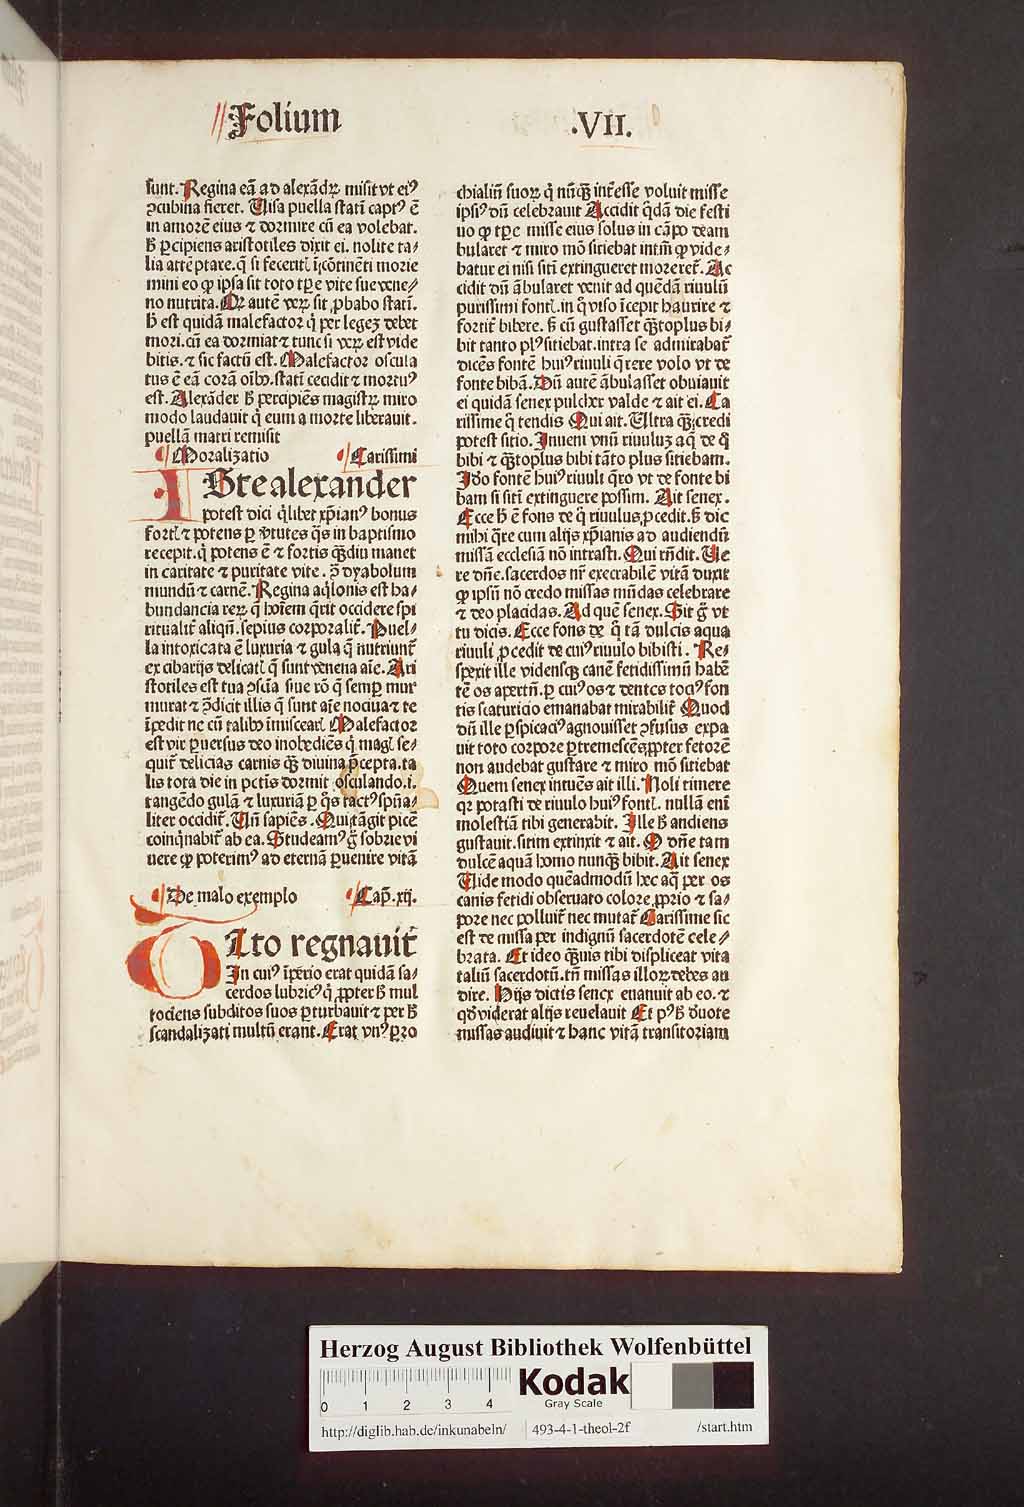 Folium .VII.
sunt. Regina eā ad alexādꝝ misit vt eiꝰ
ꝯcubina fieret. Uisa puella statī captꝰ ē
in amorē eius ⁊ dormire cū ea volebat.
ħ ꝑcipiens aristotiles dixit ei. nolite ta/
lia attēptare. q̄ si feceritꝭ īcōtinēti morie
mini eo ꝙ ipsa sit toto tꝑe vite sue vene/
no nutrita. Qꝛ autē veꝝ sit ꝓbabo statī.
ħ est quidā malefactor q̇ per legeꝫ debet
mori. cū ea dormiat ⁊ tunc si veꝝ est vide
bitis. ⁊ sic factū est. Malefactor oscula
tus ē eā corā oībꝰ. statī cecidit ⁊ mortuꝰ
est. Alexāder ħ percipiēs magistꝝ miro
modo laudauit q̇ eum a morte liberauit.
puellā matri remisit
Moralizatio Carissimi
ISte alexander
potest dici q̇libet xp̄ianꝰ bonus
fortꝭ ⁊ potens ꝑ v̓tutes q̄s in baptismo
recepit. q̇ potens ē ⁊ fortis qͣ̄diu manet
in caritate ⁊ puritate vite. ꝯ̄ dyabolum
mundū ⁊ carnē. Regina aq̇lonis est ha/
bundancia reꝝ q̄ hoīem q̄rit occidere spi
ritualit̄ aliqn̄. sepius corporalit̄. Puel/
la intoxicata ē luxuria ⁊ gula q̄ nutriunt̄
ex cibarijs delicatꝭ q̄ sunt venena aīe. Ari
stotiles est tua ꝯsciā siue rō q̄ semꝑ mur
murat ⁊ ꝯ̄dicit illis q̄ sunt aīe nociua ⁊ te
īpedit ne cū talibꝰ īmiscearꝭ Malefactor
est vir ꝑuersus deo inobediēs q̇ magꝭ se/
quit̄ delicias carnis qͣ̄ diuina p̄cepta. ta
lis tota die in pctīs dormit osculando. i.
tangēdo gulā ⁊ luxuriā ꝑ q̄s tactꝰ spūa/
liter occidit̄. Un̄ sapiēs. Qui tāgit picē
coinq̇nabit̄ ab ea. Studeamꝰ g̊ sobrie vi
uere ꝙ poterimꝰ ad eternā ꝑuenire vitā
De malo exemplo Cap̄. xij.
OTto regnauit̄
In cuiꝰ īperio erat quidā sa/
cerdos lubricꝰ q̇ ꝓpter ħ mul
tociens subditos suos ꝑturbauit ⁊ per ħ
scandalizati multū erant. Erat vnꝰ ꝑro
chialiū suoꝝ q̇ nūqͣ̄ int̄esse voluit misse
ipsiꝰ dū celebrauit Accidit q̇dā die festi
uo ꝙ tꝑe misse eius solus in cāpo deam
bularet ⁊ miro mō sitiebat intm̄ ꝙ vide/
batur ei nisi sitī extingueret moreret̄. Ac
cidit dū ābularet venit ad quēdā riuulū
purissimi fontꝭ. in q̊ viso īcepit haurire ⁊
fortit̄ bibere. ſʒ cū gustasset qͣ̄toplus bi/
bit tanto plꝰ sitiebat. intra se admirabat̄
dicēs fontē huiꝰ riuuli q̄rere volo vt de
fonte bibā. Dū autē ābulasset obuiauit
ei quidā senex pulcher valde ⁊ ait ei. Ca
rissime q̊ tendis Qui ait. Ultra qͣ̄ credi
potest sitio. Inueni vnū riuuluꝫ aq̄ de q̊
bibi ⁊ qͣ̄toplus bibi tāto plus sitiebam.
Ido fontē huiꝰ riuuli q̄ro vt de fonte bi
bam si sitī extinguere possim. Ait senex.
Ecce ħ ē fons de q̊ riuulus ꝓcedit. ſʒ dic
mihi q̄re cum alijs xp̄ianis ad audiendū
missā ecclesiā nō intrasti. Qui rn̄dit. Ue
re dn̄e. sacerdos nr̄ execrabilē vitā duxit
ꝙ ipsū nō credo missas mūdas celebrare
⁊ deo placidas. Ad quē senex. Sit g̊ vt
tu dicis. Ecce fons de q̊ tā dulcis aqua
riuuli ꝓcedit de cuiꝰ riuulo bibisti. Re/
spexit ille vidensqꝫ canē fetidissimū habē
tē os apertū. ꝑ cuiꝰ os ⁊ dentes tociꝰ fon
tis scaturicio emanabat mirabilit̄ Quod
dū ille ꝑspicaciꝰ agnouisset ꝯfusus expa
uit toto corpore ꝑtremescēs. ꝓpter fetorē
non audebat gustare ⁊ miro mō sitiebat
Quem senex intuēs ait illi. Noli timere
qꝛ potasti de riuulo huiꝰ fontꝭ. nullā enī
molestiā tibi generabit. Ille ħ audiens
gustauit. sitim extinxit ⁊ ait. O dn̄e tam
dulcē aquā homo nunqͣ̄ bibit. Ait senex
Uide modo quēadmodū hec aq̄ per os
canis fetidi obseruato colore ꝓprio ⁊ sa/
pore nec polluit̄ nec mutat̄ Carissime sic
est de missa per indignū sacerdotē cele/
brata. Et ideo qͣ̄uis tibi displiceat vita
taliū sacerdotū. tn̄ missas illoꝝ debes au
dire. Hijs dictis senex euanuit ab eo. ⁊
qd̄ viderat alijs reuelauit Et pꝰ ħ d̓uote
missas audiuit ⁊ hanc vitā transitoriam
Herzog August Bibliothek Wolfenbüttel
0 1 2 3 4
Kodak
Gray Scale
http://diglib.hab.de/inkunabeln/ 493-4-1-theol-2f /start.htm